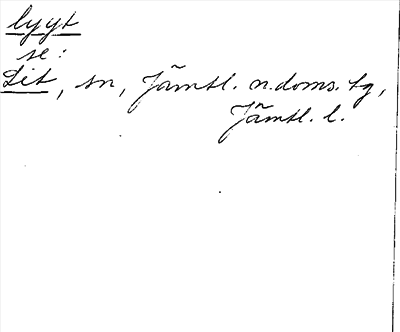 lyyt
se:
Lit, sn, Jämtl. n.doms. tg,
Jämtl. l.